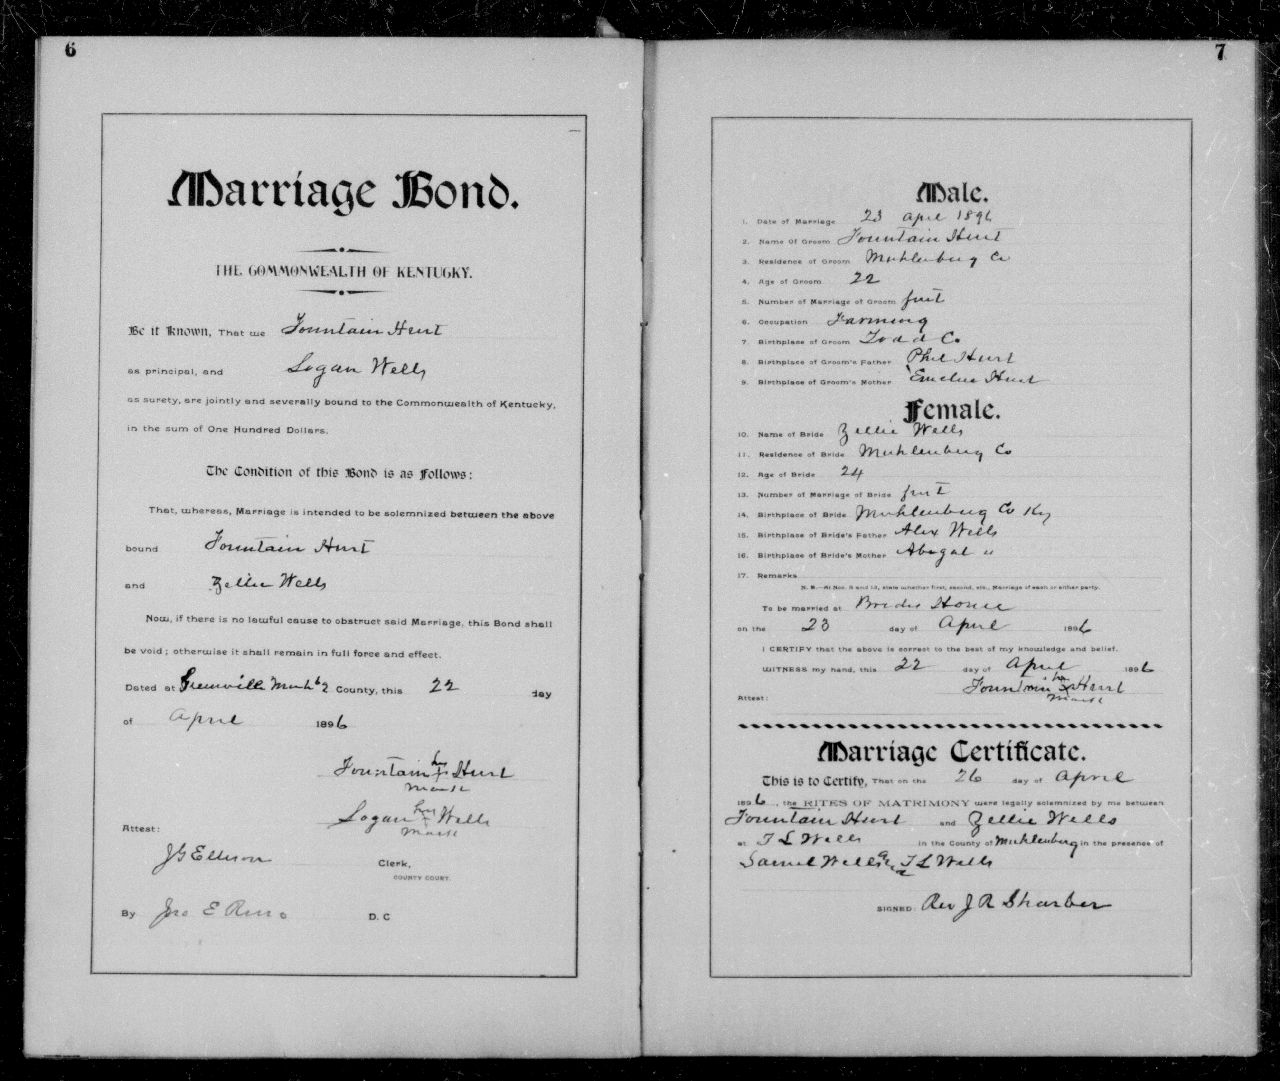 6
Marriage Bond.
THE COMMONWEALTH OF KENTUCKY.
Be it Known, That we Fountain Hurt
as principal, and Logan Wells
as surety, are jointly and severally bound to the Commonwealth of Kentucky,
in the sum of One Hundred Dollars.
The Condition of this Bond is as Follows:
That, whereas, Marriage is intended to be solemnized between the above
bound Fountain Hurt
and Zellie Wells
Now, if there is no lawful cause to obstruct said Marriage, this Bond shall
be void; otherwise it shall remain in full force and effect.
Dated at Greenville County, this 22 day
of April 1896
Fountain his x Hurt
mark
Logan his x Wells
mark
Attest:
J G Ellison Clerk,
COUNTY COURT.
By Jno E Reno D. C
7
Male.
1. Date of Marriage 23 April 1896
2. Name Of Groom Fountain Hurt
3. Residence of Groom Muhlenburg Co
4. Age of Groom 22
5. Number of Marriage of Groom first
6. Occupation Farming
7. Birthplace of Groom Todd Co
8. Birthplace of Groom's Father Phil Hurt
9. Birthplace of Groom's Mother Hurt
Female.
10. Name of Bride Zellie Wells
11. Residence of Bride Muhlenburg Co
12. Age of Bride 24
13. Number of Marriage of Bride first
14. Birthplace of Bride Muhlenburg Co Ky
15. Birthplace of Bride's Father Alex Wells
16. Birthplace of Bride's Mother Abegal "
17. Remarks
N. B.—At Nos. 5 and 13, state whether first, second, etc., Marriage of each or either party.
To be married at Brides House
on the 23 day of April 1896
I CERTIFY that the above is correct to the best of my knowledge and belief.
WITNESS my hand, this 22 day of April 1896
Fountain his x Hurt
mark
Attest:
Marriage Certificate.
This is to Certify, That on the 26 day of April
1896, the RITES OF MATRIMONY were legally solemnized by me between
Fountain Hurt and Zellie Wells
at T L Wells in the County of Muhlenburg in the presence of
Samuel Wells and T L Wells
SIGNED: Rev J R Sharber